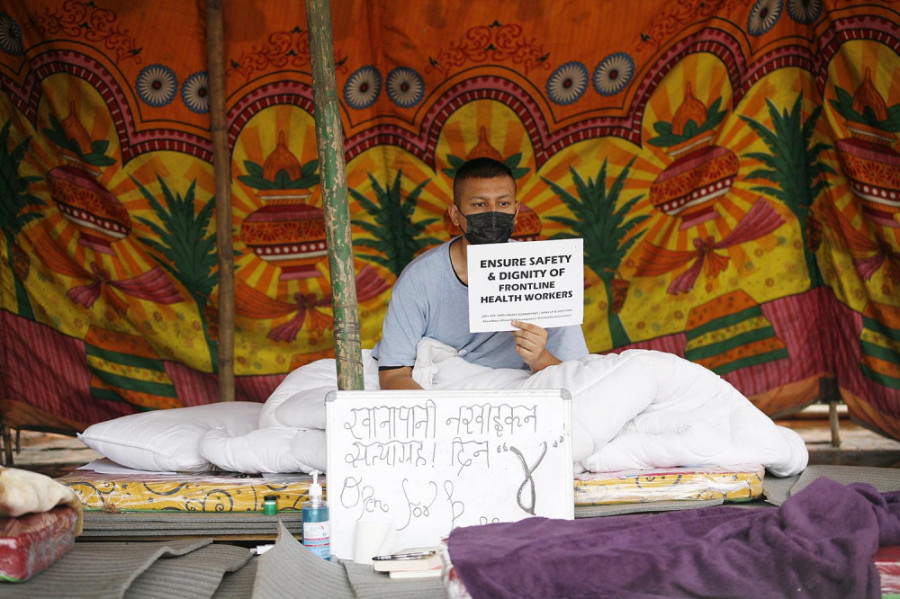 ENSURE SAFETY
& DIGNITY OF
FRONTLINE
HEALTH WORKERS
खानापानी नखाइकन
सत्याग्रह! दिन "४"
Open for